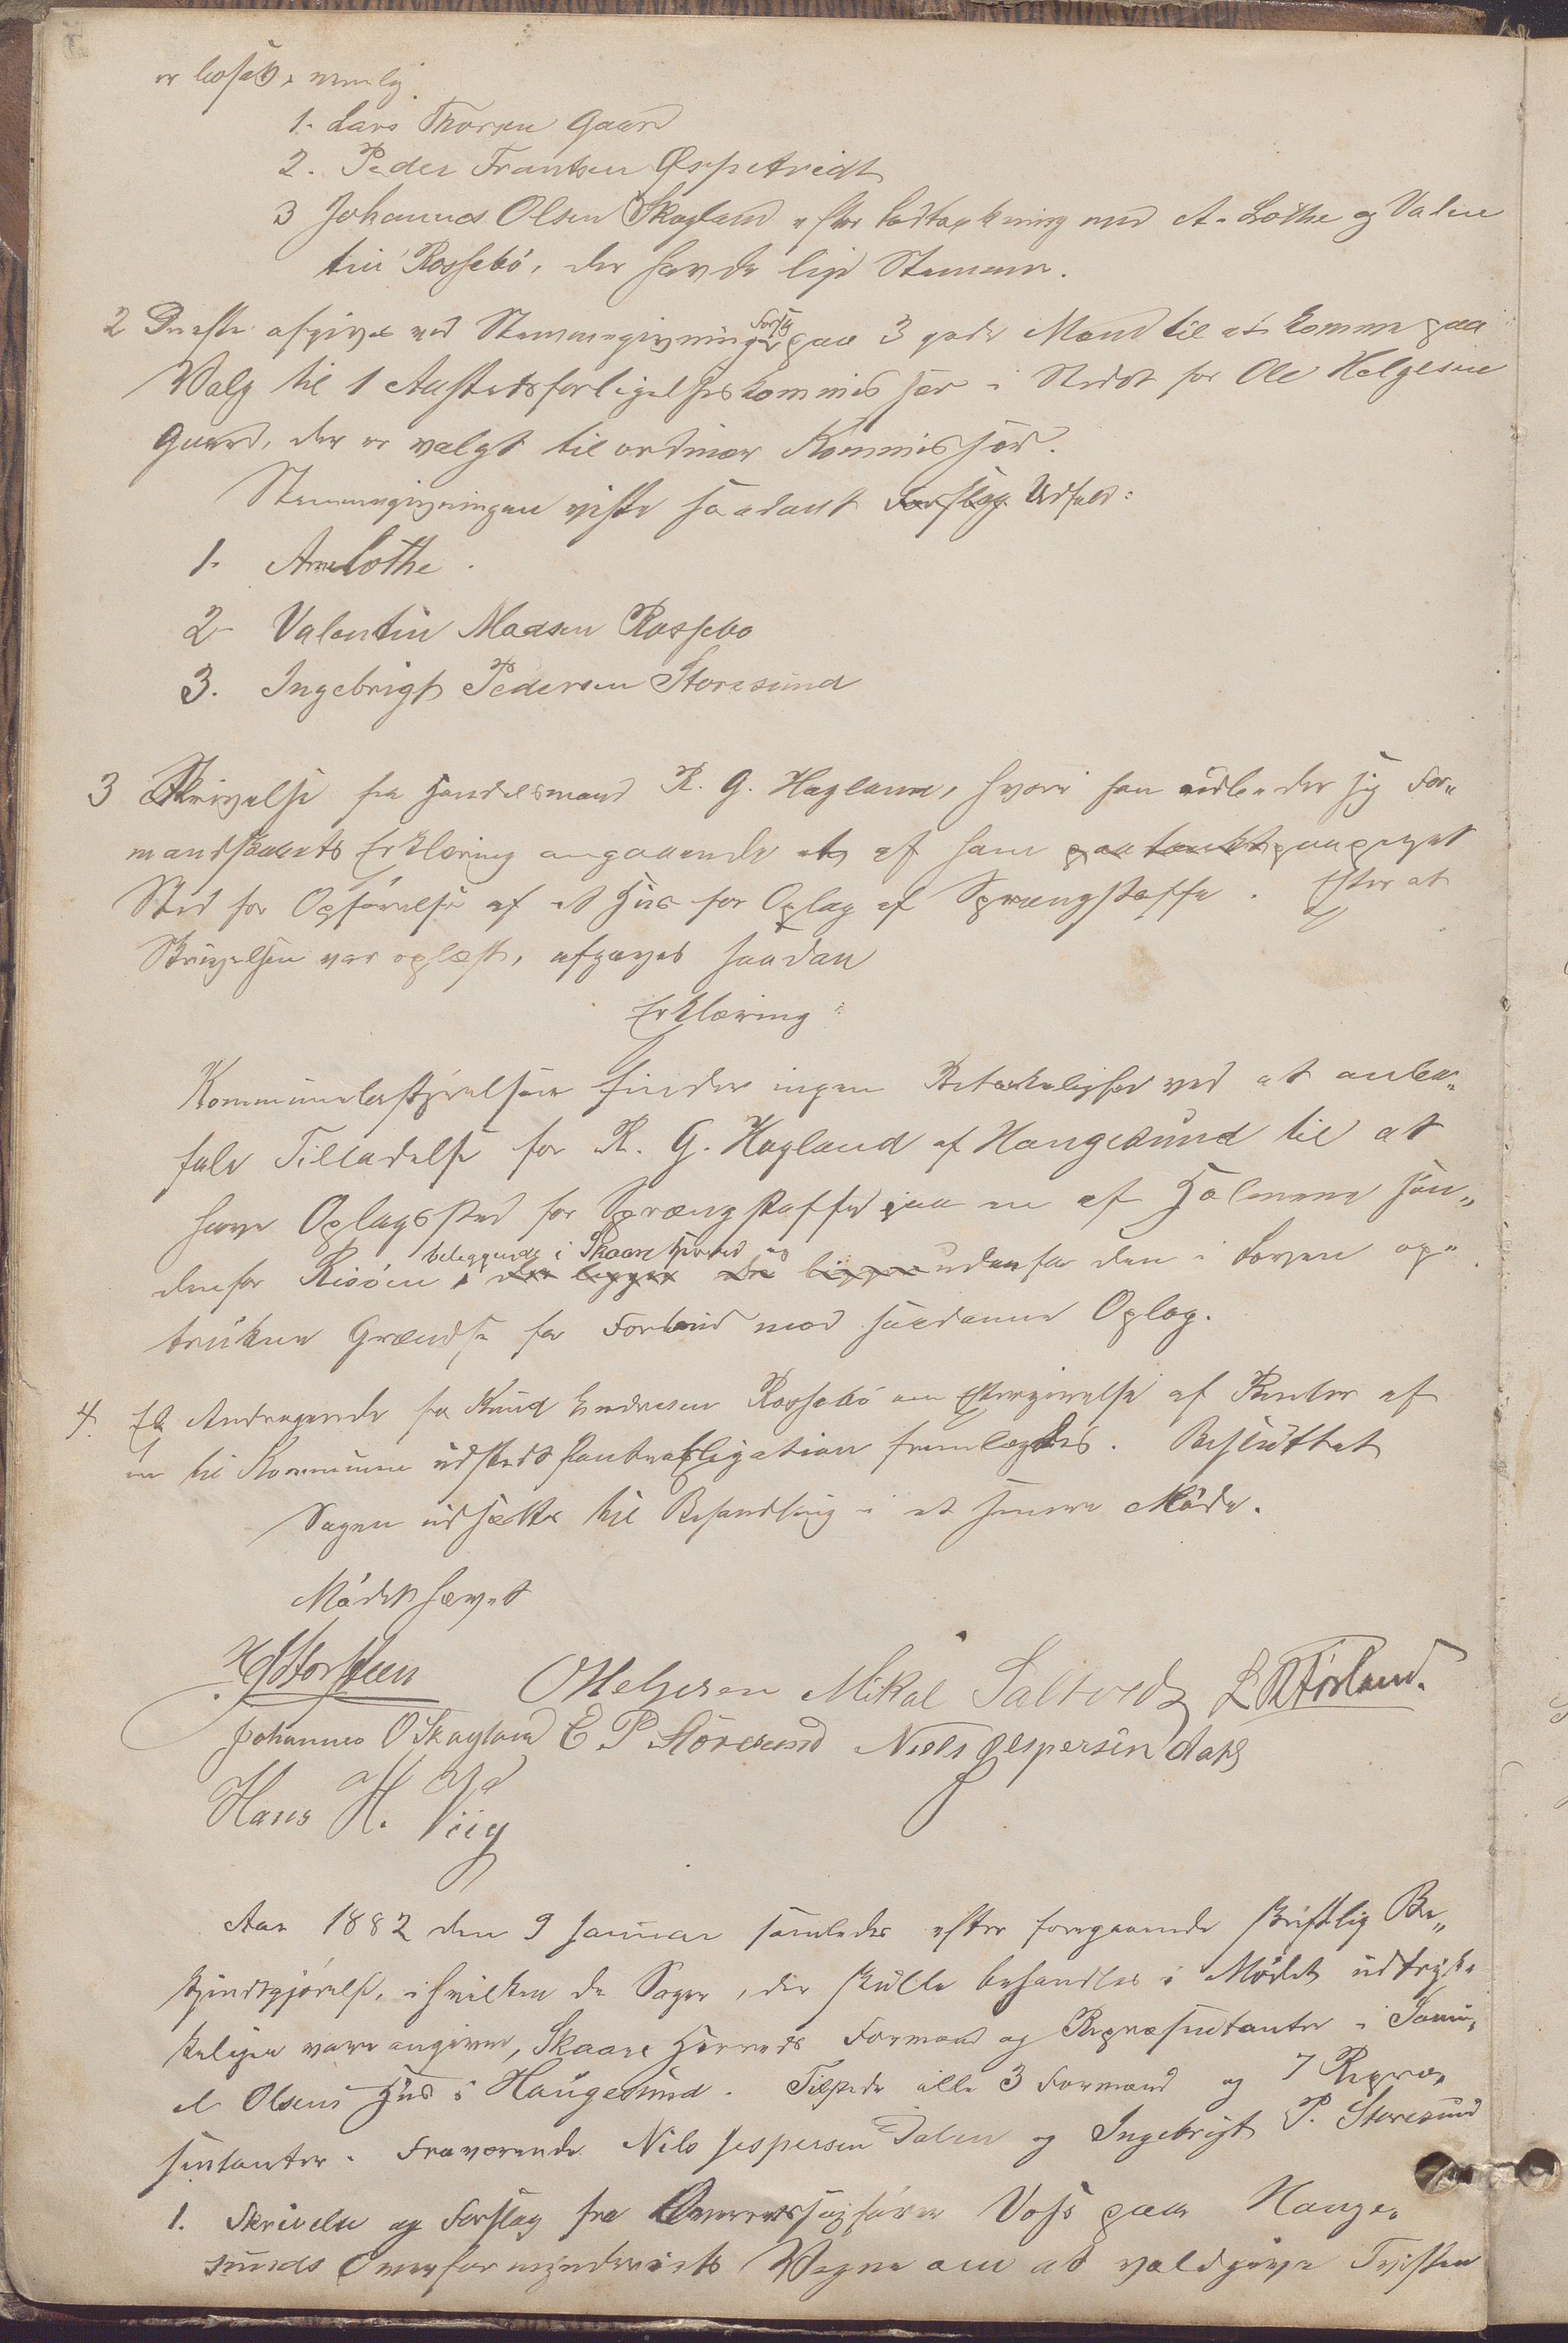 er bosat, nemlig
1. Lars Thorsen Gaard
2. Peder Frantsen Øspetvedt
3 Johannes Olsen Skogland efter Lodtrækning med A. Lothe og Valen
tin Rossebö, der havde lige Stemmer.
2 Dernæst afgives ved Stemmegivning Forslag paa 3 gode Mænd til at komme paa
Valg til 1 Anstedsforligelseskommissær i Stedet for Ole Helgesen
Gaard, der er valgt til ordinær Kommissær.
Stemmegivningen viste saadant Forslag Udfald:
1. Arne Lothe.
2 Valentin Madsen Rossebø
3. Ingebrigt Pedersen Storesund
3 Skrivelse fra Handelsmand R. G. Hagland, hvori han udbeder sig For„
mandskabets Erklæring angaaende et af ham paatænkt paapeget
Sted for Opførelse af et Hus for Oplag af Sprængstoffe. Efter at
Skrivelsen var oplæst, afgaves saadan
Erklæring:
Kommunebestyrelsen finder ingen Betænkelighed ved at anbe„
fale Tilladelse for R. G. Hagland af Haugesund til at
have Oplagssted for Sprængstoffe paa en af Holmene søn„
denfor Risøen, beliggende i Skaare Herred og der ligger udenfor den i Loven op„
trukne Grændse for Forbud mod saadanne Oplag.
4. Et Andragende fra Knud Endresen Rossebö om Eftergivelse af Renter af
en til Kommunen udstedt Panteobligation fremlagdes. Besluttet
Sagen udsættes til Behandling i et senere Möde.
Mödet hævet
Storsteen O Helgesen Mikal Saltvedt L R Førland.
Johannes O Skogland E P Storesund Niels Jespersen Dahl
Hans H. Viig
Aar 1882 den 9 Januar samledes efter foregaaende skriftlig Be„
kjendtgjørelse, i hvilken de Sager, der skulle behandles i Mødet udtryk„
keligen vare angivne, Skaare Herreds Formænd og Repræsentanter i Samu„
el Olsens Hus i Haugesund. Tilstede alle 3 Formænd og 7 Repræ„
sentanter. Fraværende Nils Jespersen Dalen og Ingebrigt P. Storesund
1. Skrivelse og Forslag fra Overretssagfører Voss paa Hauge„
sunds Overformynderiets Vegne om at voldgive Tvisten